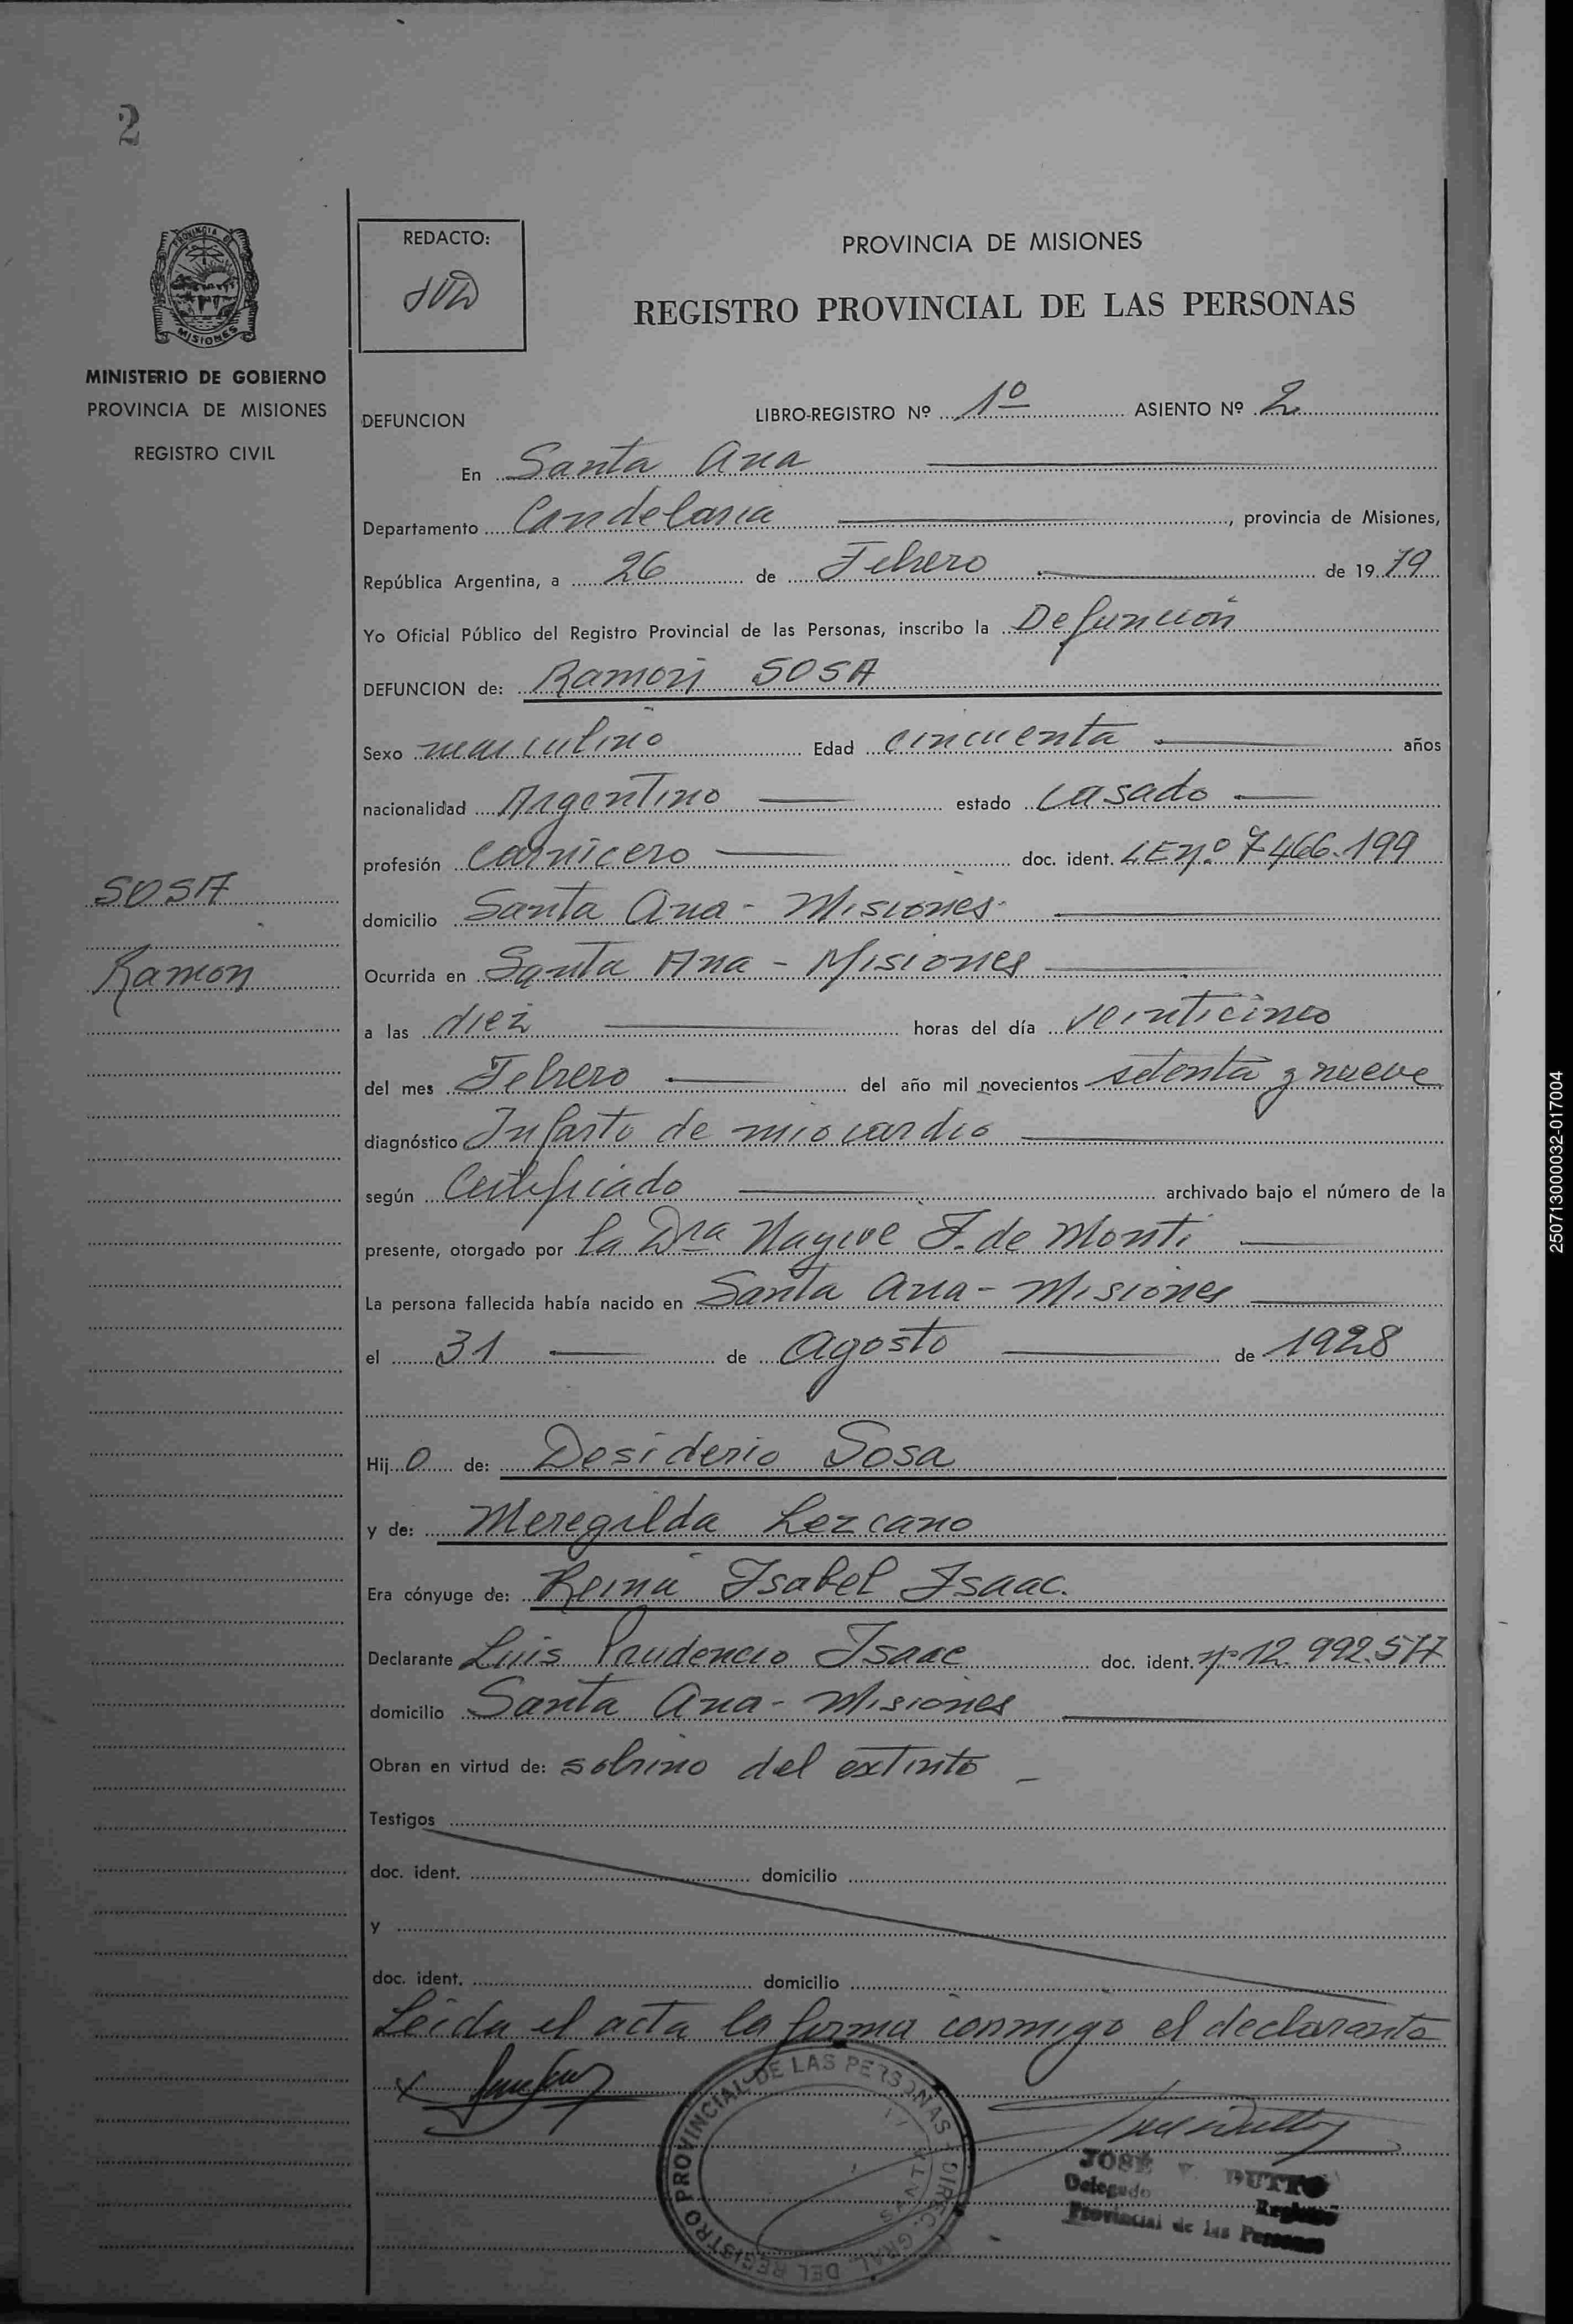 2
PROVINCIA DE
MISIONES
MINISTERIO DE GOBIERNO
PROVINCIA DE MISIONES
REGISTRO CIVIL
SOSA
Ramon
REDACTO:
PROVINCIA DE MISIONES
REGISTRO PROVINCIAL DE LAS PERSONAS
DEFUNCION LIBRO-REGISTRO Nº 1º ASIENTO Nº 2
En Santa Ana
Departamento Candelaria, provincia de Misiones,
República Argentina, a 26 de Febrero de 1979
Yo Oficial Público del Registro Provincial de las Personas, inscribo la Defunción
DEFUNCION de: Ramón SOSA
Sexo masculino Edad cincuenta años
nacionalidad Argentino estado casado
profesión carnicero doc. ident. LE nº 7466.199
domicilio Santa Ana - Misiones
Ocurrida en Santa Ana - Misiones
a las diez horas del día veinticinco
del mes Febrero del año mil novecientos setenta y nueve
diagnóstico Infarto de miocardio
según Certificado archivado bajo el número de la
presente, otorgado por la Dra Nayive J. de Monti
La persona fallecida había nacido en Santa Ana - Misiones
el 31 de Agosto de 1928
Hijo de: Desiderio Sosa
y de: Meregilda Lezcano
Era cónyuge de: Reina Isabel Isaac.
Declarante Luis Prudencio Isaac doc. ident. nº 12.992.577
domicilio Santa Ana - Misiones
Obran en virtud de: sobrino del extinto -
Testigos
doc. ident. domicilio
y
doc. ident. domicilio
Leida el acta la firma conmigo el declarante
REGISTRO PROVINCIAL DE LAS PERSONAS - DIREC. GRAL. DEL
SANTA
JOSE DUTTO
Delegado Registro
Provincial de las Personas
250713000032-017004